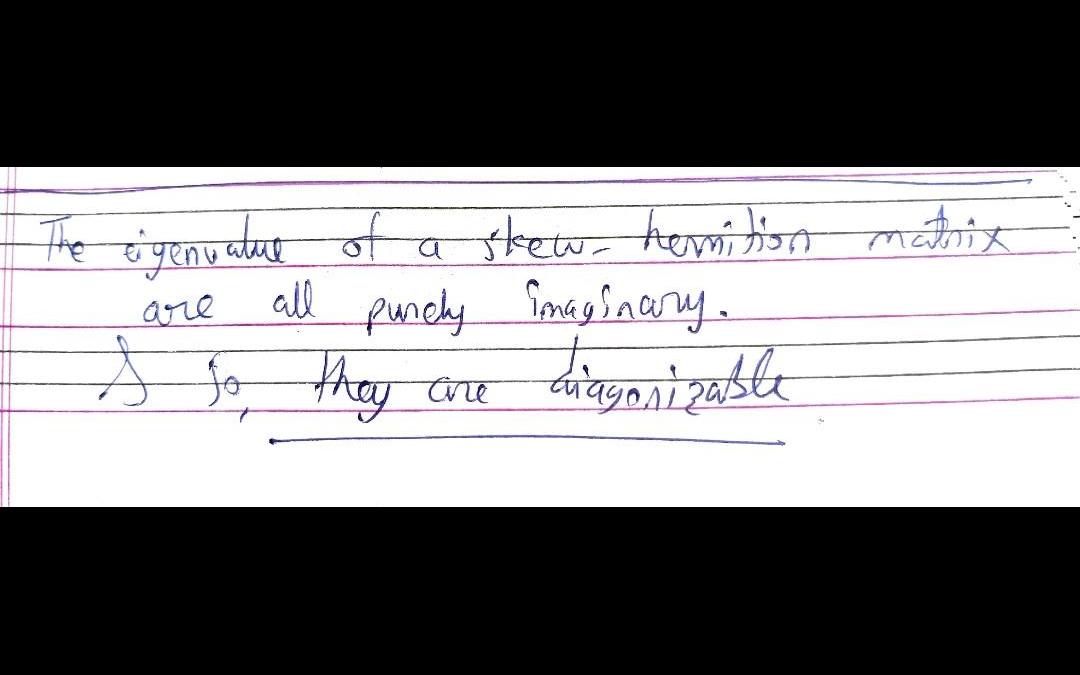 The eigenvalue of a skew-hermition matrix
are all purely imaginary.
So, they are diagonizable